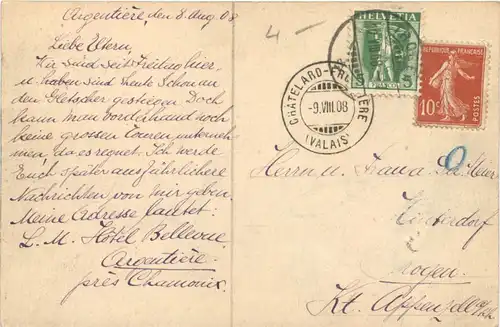 Argentière, den 8. Aug 08
Liebe Eltern,
Wir sind seit Freitag hier,
u. haben sind heute schon an
den Gletscher gestiegen. Doch
kann man vorderhand noch
keine grossen Touren unterneh-
men, da es regnet. Ich werde
Euch später ausführlichere
Nachrichten von mir geben.
Meine Adresse lautet:
L. M. Hôtel Bellevue
Argentière
près Chamonix.
4 —
HELVETIA
FRANCO
CHÂTELARD-FRONTIÈRE
-9.VIII.08
(VALAIS)
RÉPUBLIQUE FRANÇAISE
10c
POSTES
Herrn u. Frau
Hinterdorf
Trogen
Kt. Appenzell